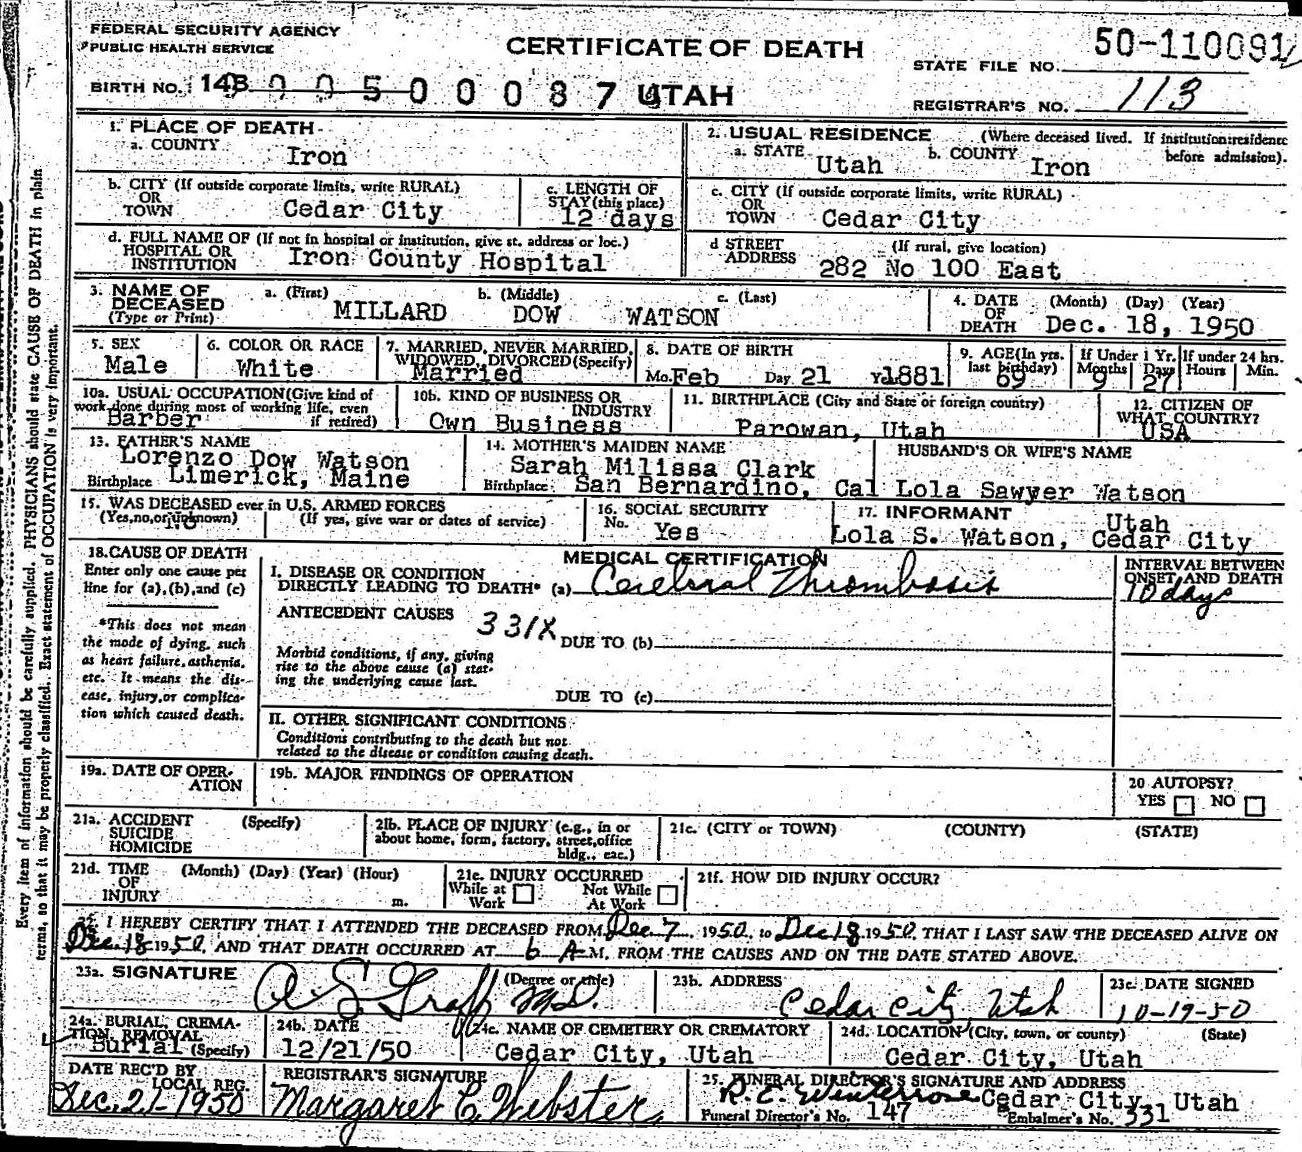 FEDERAL SECURITY AGENCY
PUBLIC HEALTH SERVICE
CERTIFICATE OF DEATH
50-110091
STATE FILE NO.
BIRTH NO. 143 0 0 5 0 0 0 8 7 UTAH
REGISTRAR'S NO. 113
1. PLACE OF DEATH
a. COUNTY Iron
2. USUAL RESIDENCE (Where deceased lived. If institution:residence before admission).
a. STATE Utah b. COUNTY Iron
b. CITY (If outside corporate limits, write RURAL)
OR
TOWN Cedar City
c. LENGTH OF
STAY (this place)
12 days
c. CITY (If outside corporate limits, write RURAL)
OR
TOWN Cedar City
d. FULL NAME OF (If not in hospital or institution, give st. address or loc.)
HOSPITAL OR
INSTITUTION Iron County Hospital
d STREET (If rural, give location)
ADDRESS 282 No 100 East
3. NAME OF DECEASED (Type or Print)
a. (First) b. (Middle) c. (Last)
MILLARD DOW WATSON
4. DATE OF DEATH (Month) (Day) (Year)
Dec. 18, 1950
5. SEX
Male
6. COLOR OR RACE
White
7. MARRIED, NEVER MARRIED,
WIDOWED, DIVORCED (Specify)
Married
8. DATE OF BIRTH
Mo. Feb Day 21 Y 1881
9. AGE (In yrs. last birthday)
69
If Under 1 Yr.
Months 9 Days 27
If under 24 hrs.
Hours Min.
10a. USUAL OCCUPATION (Give kind of
work done during most of working life, even
if retired)
Barber
10b. KIND OF BUSINESS OR
INDUSTRY
Own Business
11. BIRTHPLACE (City and State or foreign country)
Parowan, Utah
12. CITIZEN OF
WHAT COUNTRY?
USA
13. FATHER'S NAME
Lorenzo Dow Watson
Birthplace Limerick, Maine
14. MOTHER'S MAIDEN NAME
Sarah Milissa Clark
Birthplace: San Bernardino, Cal
HUSBAND'S OR WIFE'S NAME
Lola Sawyer Watson
15. WAS DECEASED ever in U.S. ARMED FORCES
(Yes, no, or unknown) (If yes, give war or dates of service)
No
16. SOCIAL SECURITY
No. Yes
17. INFORMANT Utah
Lola S. Watson, Cedar City
18. CAUSE OF DEATH
Enter only one cause per
line for (a), (b), and (c)
*This does not mean
the mode of dying, such
as heart failure, asthenia,
etc. It means the dis-
ease, injury, or complica-
tion which caused death.
MEDICAL CERTIFICATION
I. DISEASE OR CONDITION
DIRECTLY LEADING TO DEATH* (a) Cerebral Thrombosis
INTERVAL BETWEEN
ONSET AND DEATH
10 days
ANTECEDENT CAUSES 331X
DUE TO (b)
Morbid conditions, if any, giving
rise to the above cause (a) stat-
ing the underlying cause last.
DUE TO (c)
II. OTHER SIGNIFICANT CONDITIONS
Conditions contributing to the death but not
related to the disease or condition causing death.
19a. DATE OF OPER-
ATION
19b. MAJOR FINDINGS OF OPERATION
20 AUTOPSY?
YES NO
21a. ACCIDENT (Specify)
SUICIDE
HOMICIDE
21b. PLACE OF INJURY (e.g., in or
about home, form, factory, street, office
bldg., eac.)
21c. (CITY or TOWN) (COUNTY) (STATE)
21d. TIME (Month) (Day) (Year) (Hour)
OF
INJURY m.
21e. INJURY OCCURRED
While at Work Not While At Work
21f. HOW DID INJURY OCCUR?
22. I HEREBY CERTIFY THAT I ATTENDED THE DECEASED FROM Dec. 7, 1950, to Dec 18 1950, THAT I LAST SAW THE DECEASED ALIVE ON
Dec. 18 1950, AND THAT DEATH OCCURRED AT 6 A M. FROM THE CAUSES AND ON THE DATE STATED ABOVE.
23a. SIGNATURE (Degree or title)
A S Graff M.D.
23b. ADDRESS
Cedar City, Utah
23c. DATE SIGNED
10-19-50
24a. BURIAL, CREMA-
TION, REMOVAL
Burial (Specify)
24b. DATE
12/21/50
24c. NAME OF CEMETERY OR CREMATORY
Cedar City, Utah
24d. LOCATION (City, town, or county) (State)
Cedar City, Utah
DATE REC'D BY
LOCAL REG.
Dec. 21-1950
REGISTRAR'S SIGNATURE
Margaret C. Webster
25. FUNERAL DIRECTOR'S SIGNATURE AND ADDRESS
R. C. Winterrose Cedar City, Utah
Funeral Director's No. 147 Embalmer's No. 331
Every item of information should be carefully supplied. PHYSICIANS should state CAUSE OF DEATH in plain
terms, so that it may be properly classified. Exact statement of OCCUPATION is very important.